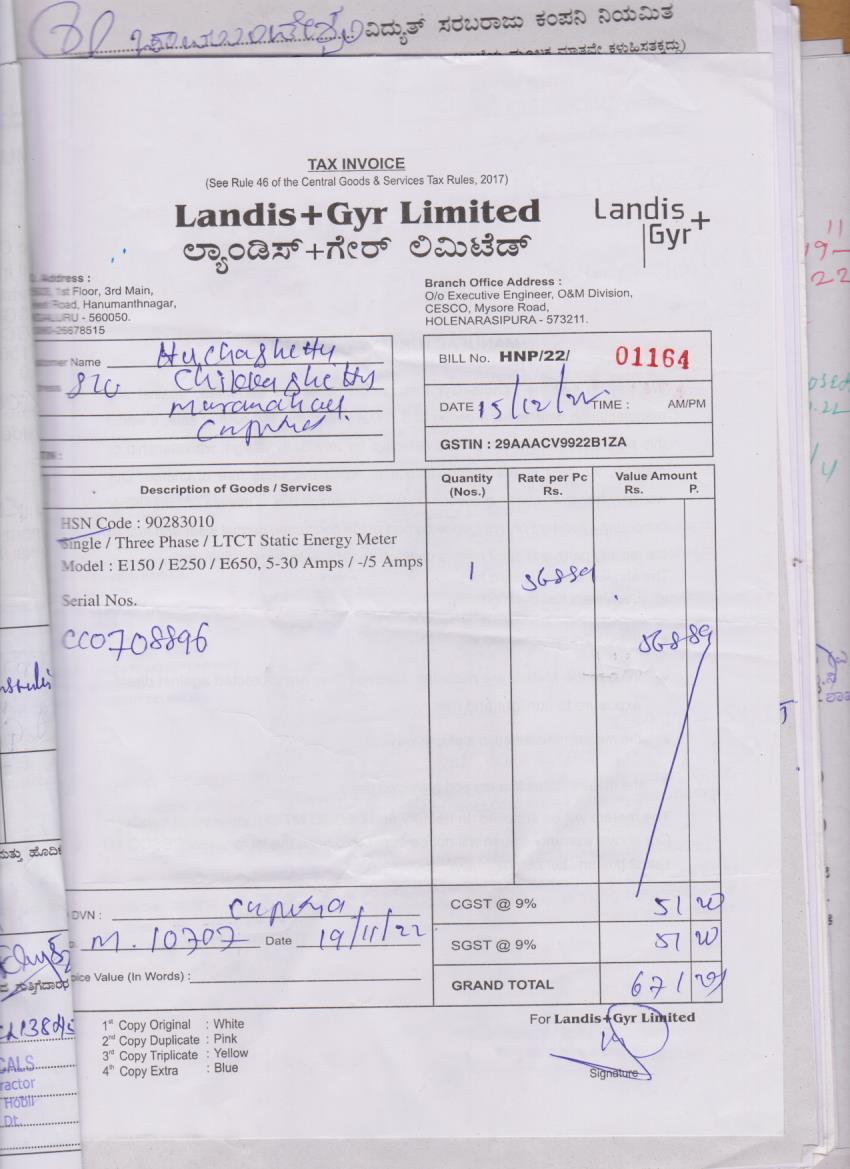 ವಿದ್ಯುತ್ ಸರಬರಾಜು ಕಂಪನಿ ನಿಯಮಿತ
ಮಾತ್ರವೇ ಕಳುಹಿಸತಕ್ಕದ್ದು)
TAX INVOICE
(See Rule 46 of the Central Goods & Services Tax Rules, 2017)
Landis+Gyr Limited
Landis+
Gyr
ಲ್ಯಾಂಡಿಸ್+ಗೇರ್ ಲಿಮಿಟೆಡ್
Address :
1st Floor, 3rd Main,
Road, Hanumanthnagar,
- 560050.
-26678515
Branch Office Address :
O/o Executive Engineer, O&M Division,
CESCO, Mysore Road,
HOLENARASIPURA - 573211.
Name Huchashetty
S/o Chikkashetty
BILL No. HNP/22/ 01164
DATE 15/12/22 TIME : AM/PM
GSTIN : 29AAACV9922B1ZA
Description of Goods / Services
Quantity (Nos.)
Rate per Pc Rs.
Value Amount Rs. P.
HSN Code : 90283010
Single / Three Phase / LTCT Static Energy Meter
Model : E150 / E250 / E650, 5-30 Amps / -/5 Amps
1
56889
Serial Nos.
CC0708896
56889
DVN :
CGST @ 9% 51 20
M. 10707 Date 19/11/22
SGST @ 9% 51 20
Value (In Words) :
GRAND TOTAL 671 29
1st Copy Original : White
2nd Copy Duplicate : Pink
3rd Copy Triplicate : Yellow
4th Copy Extra : Blue
For Landis+Gyr Limited
Signature
CALS
ractor
Hobli
Dt.